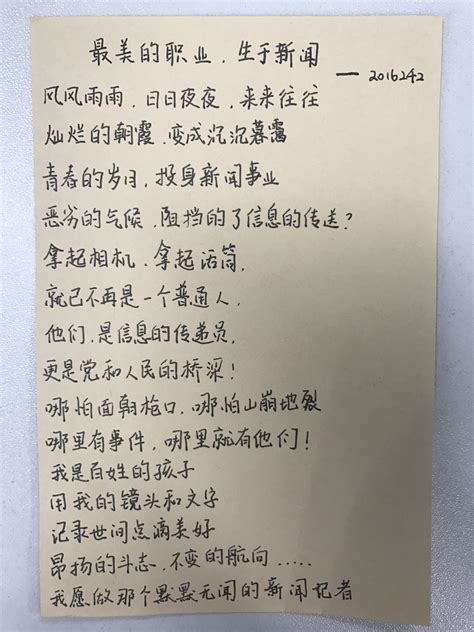 最美的职业，生于新闻
— 2016242
风风雨雨，日日夜夜，来来往往
灿烂的朝霞，变成沉沉暮霭
青春的岁月，投身新闻事业
恶劣的气候，阻挡的了信息的传送？
拿起相机，拿起话筒，
就已不再是一个普通人，
他们，是信息的传递员，
更是党和人民的桥梁！
哪怕面朝枪口，哪怕山崩地裂
哪里有事件，哪里就有他们！
我是百姓的孩子
用我的镜头和文字
记录世间点滴美好
昂扬的斗志，不变的航向……
我愿做那个默默无闻的新闻记者